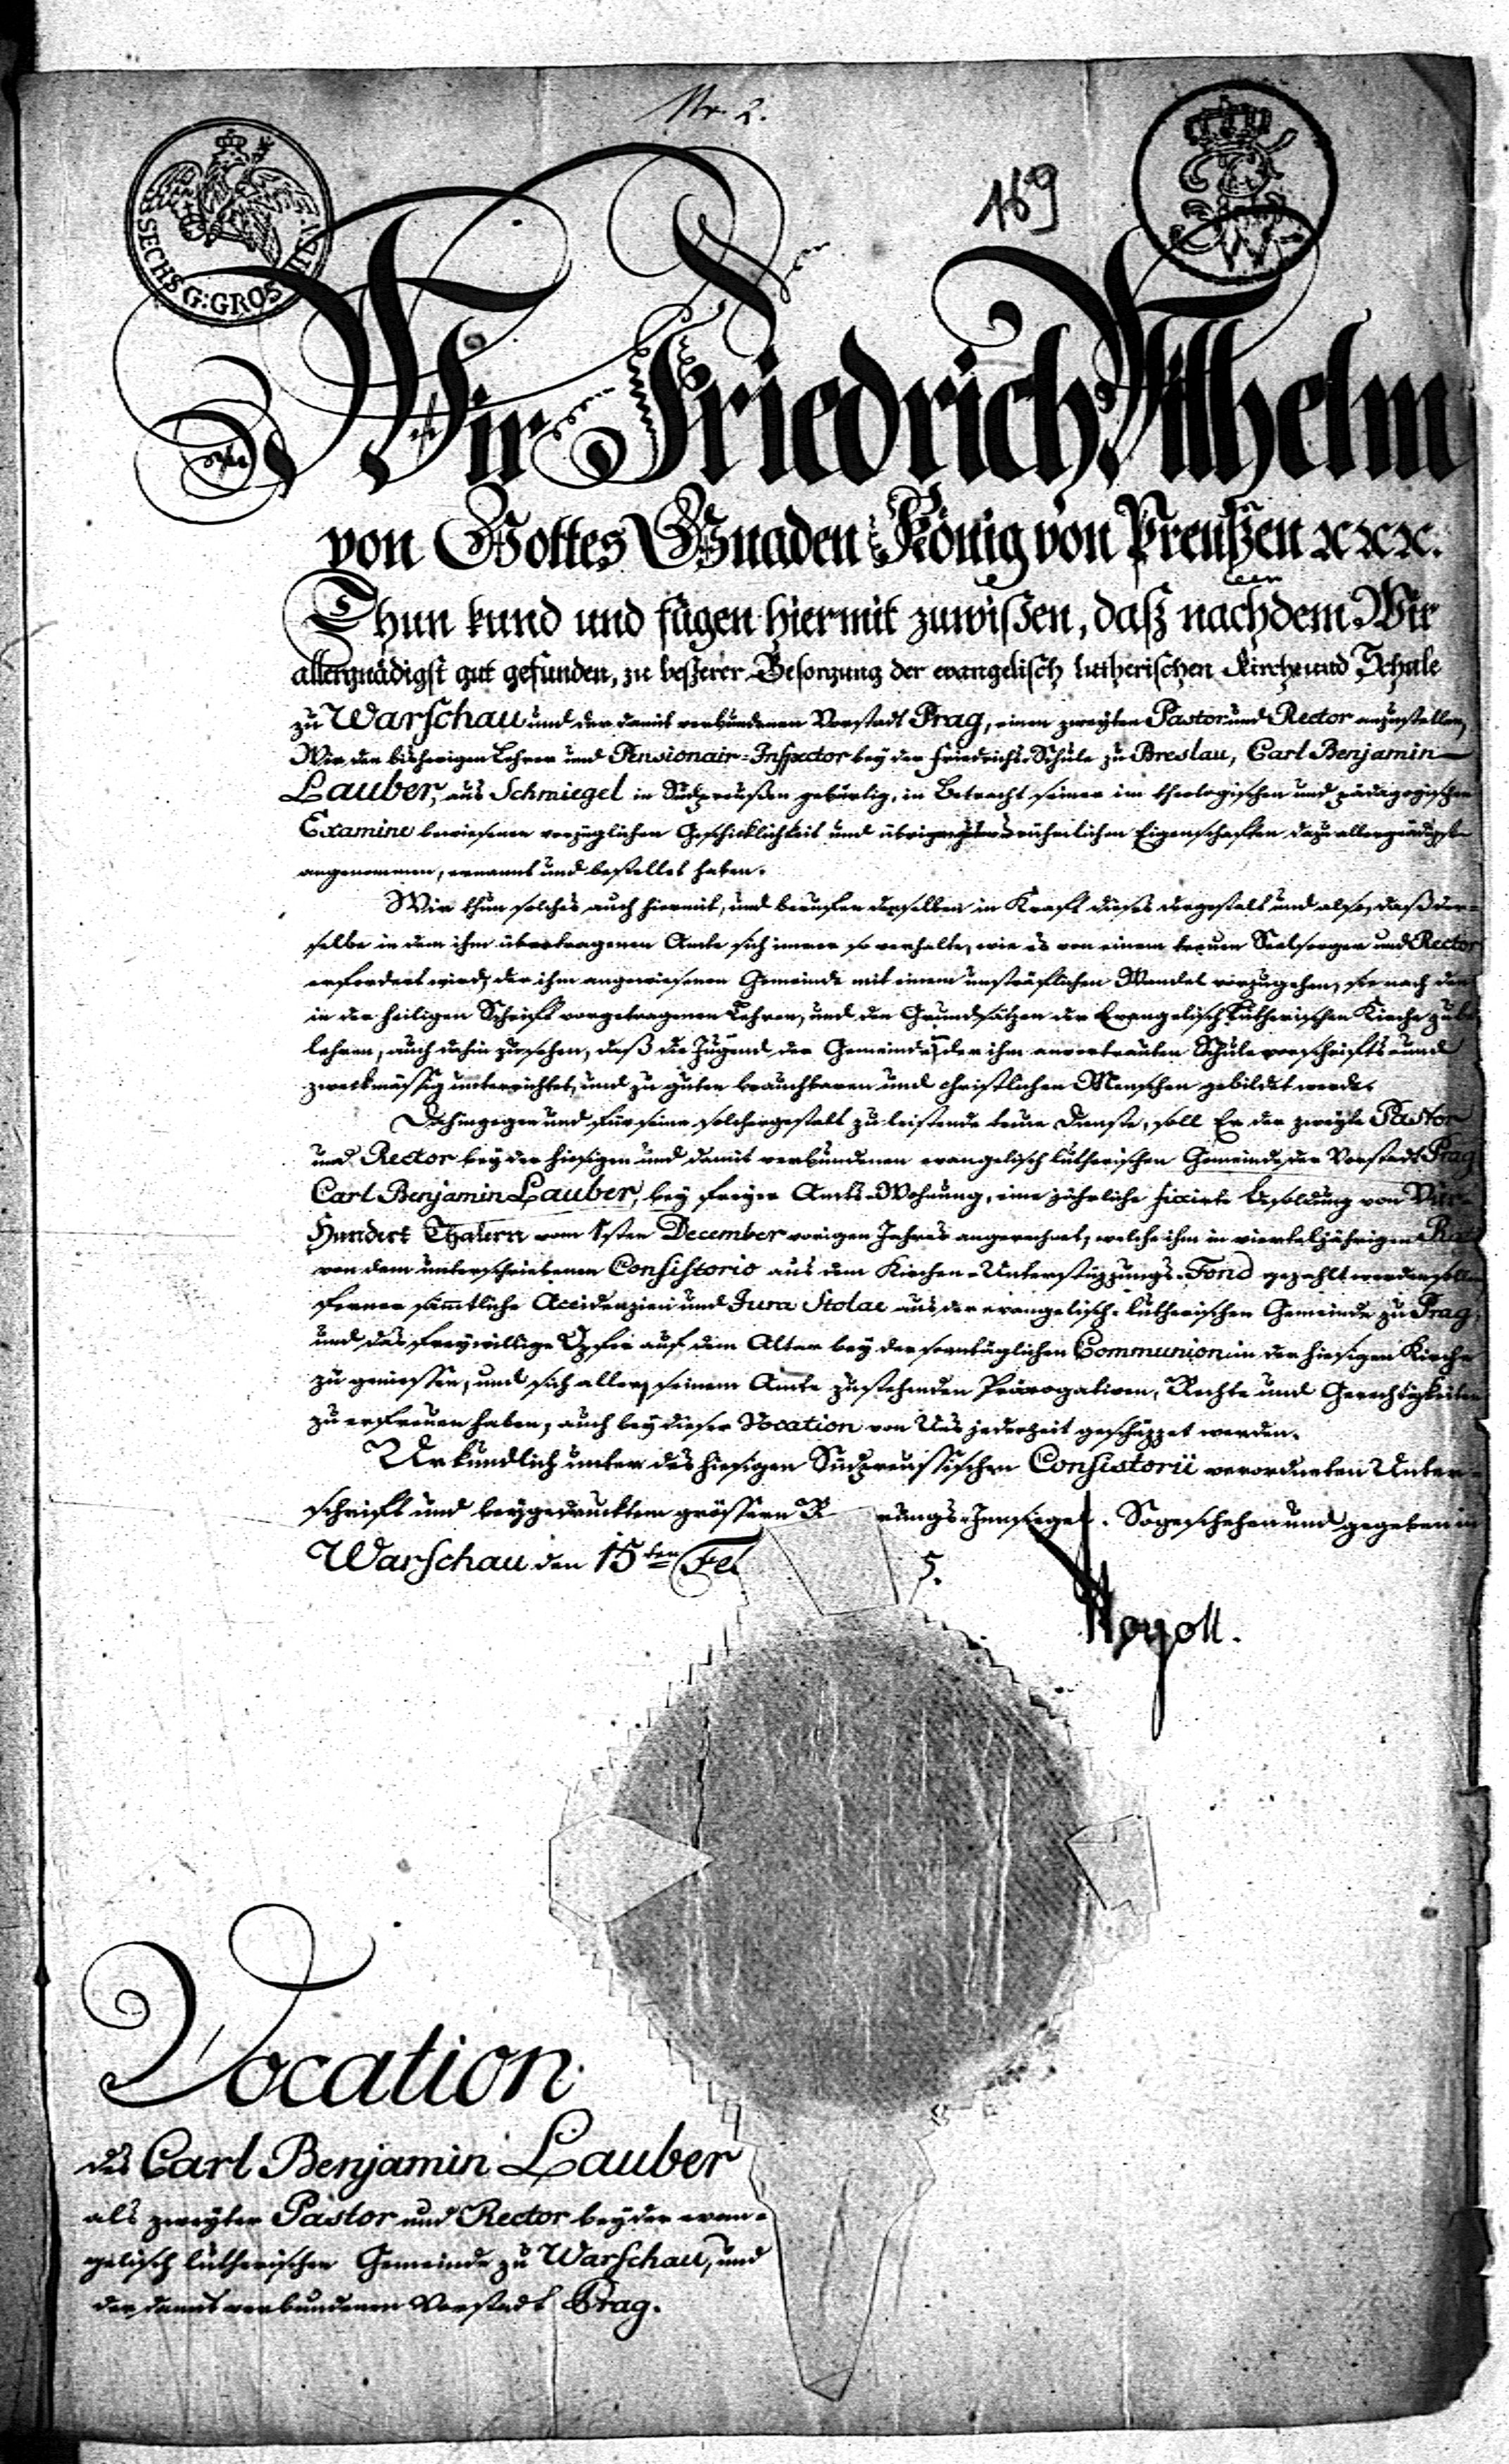 Nr. 2.
169
SECHS G: GROS
FW
Wir Friedrich Wilhelm
von Gottes Gnaden König von Preußen xxx.
Thun kund und fügen hiermit zuwißen, daß nachdem Wir
allergnädigst gut gefunden, zu beßerer Besorgung der evangelisch lutherischen Kirche und Schule
zu Warschau und der damit verbundenen Vorstadt Prag, einen zweyten Pastor und Rector anzustellen,
Wir den bisherigen Lehrer und Pensionair-Inspector bey der Friedrichs-Schule zu Breslau, Carl Benjamin
Lauber, aus Schmiegel in Südpreußen gebürtig, in Betracht seiner im theologischen und pädagogischen
Examine bewiesenen vorzüglichen Geschicklichkeit und übrigen rühmlichen Eigenschaften dazu allergnädigst
angenommen, ernannt und bestellet haben.
Wir thun solches auch hiermit, und berufen denselben in Kraft dieses dergestalt und also, daß der-
selbe in dem ihm übertragenen Amte sich immer so verhalte, wie es von einem treuen Seelsorger und Rector
erfordert wird, der ihm angewiesenen Gemeinde mit einem unsträflichen Wandel vorzugehen, sie nach den
in der heiligen Schrift vorgetragenen Lehren, und den Grundsätzen der Evangelisch Lutherischen Kirche zu be
lehren, auch dahin zu sehen, daß die Jugend der Gemeinde in der ihm anvertrauten Schule vorschrifts- und
zweckmässig unterrichtet, und zu guten brauchbaren und christlichen Menschen gebildet werde.
Dahingegen und für seine solchergestalt zu leistende treue Dienste, soll Er der zweyte Pastor
und Rector bey der hiesigen und damit verbundenen evangelisch lutherischen Gemeinde der Vorstadt Prag
Carl Benjamin Lauber, bey freyer Amts-Wohnung, eine jährliche fixirte Besoldung von Vier-
Hundert Thalern vom 1sten December vorigen Jahres angerechnet, welche ihm in vierteljährigen Rat
von dem unterschriebenen Consistorio aus dem Kirchen-Unterstüzzungs-Fond gezahlt werden sollen
ferner sämtliche Accidenzien und Jura Stolae aus der evangelisch-lutherischen Gemeinde zu Prag,
und das freywillige Opfer auf dem Altar bey der sonntäglichen Communion in der hiesigen Kirche
zu geniessen, und sich aller, seinem Amte zustehenden Prärogativen, Rechte und Gerechtigkeiten
zu erfreuen haben, auch bey dieser Vocation von Uns jederzeit geschüzzet werden.
Urkundlich unter des hiesigen Südpreussischen Consistorii verordneten Unter-
schrift und beygedrucktem grössern R rungs-Innsiegel. So geschehen und gegeben in
Warschau den 15ten Fe 5.
Hoyoll.
Vocation
des Carl Benjamin Lauber
als zweyter Pastor und Rector bey der evan-
gelisch lutherischen Gemeinde zu Warschau, und
der damit verbundenen Vorstadt Prag.